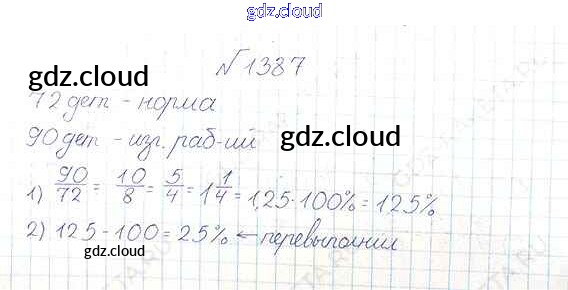 gdz.cloud
№1387
gdz.cloud
72 дет - норма
90 дет - изг. раб-ий gdz.cloud
1) 90/72 = 10/8 = 5/4 = 1 1/4 = 1,25 · 100% = 125%
gdz.cloud
2) 125 - 100 = 25% ← перевыполнил
gdz.cloud